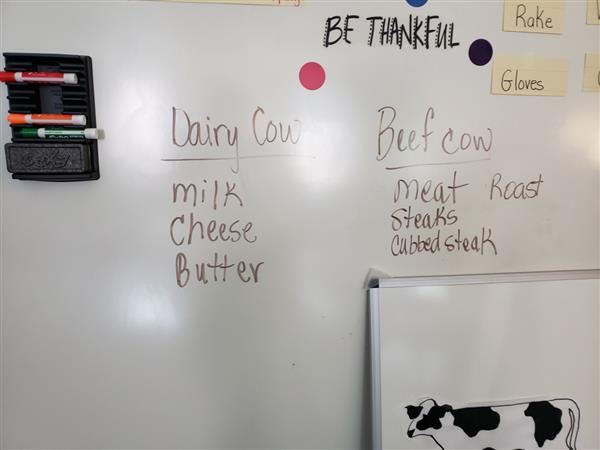 BE THANKFUL
Rake
Gloves
Dairy Cow
milk
Cheese
Butter
Beef cow
meat Roast
Steaks
Cubbed steak